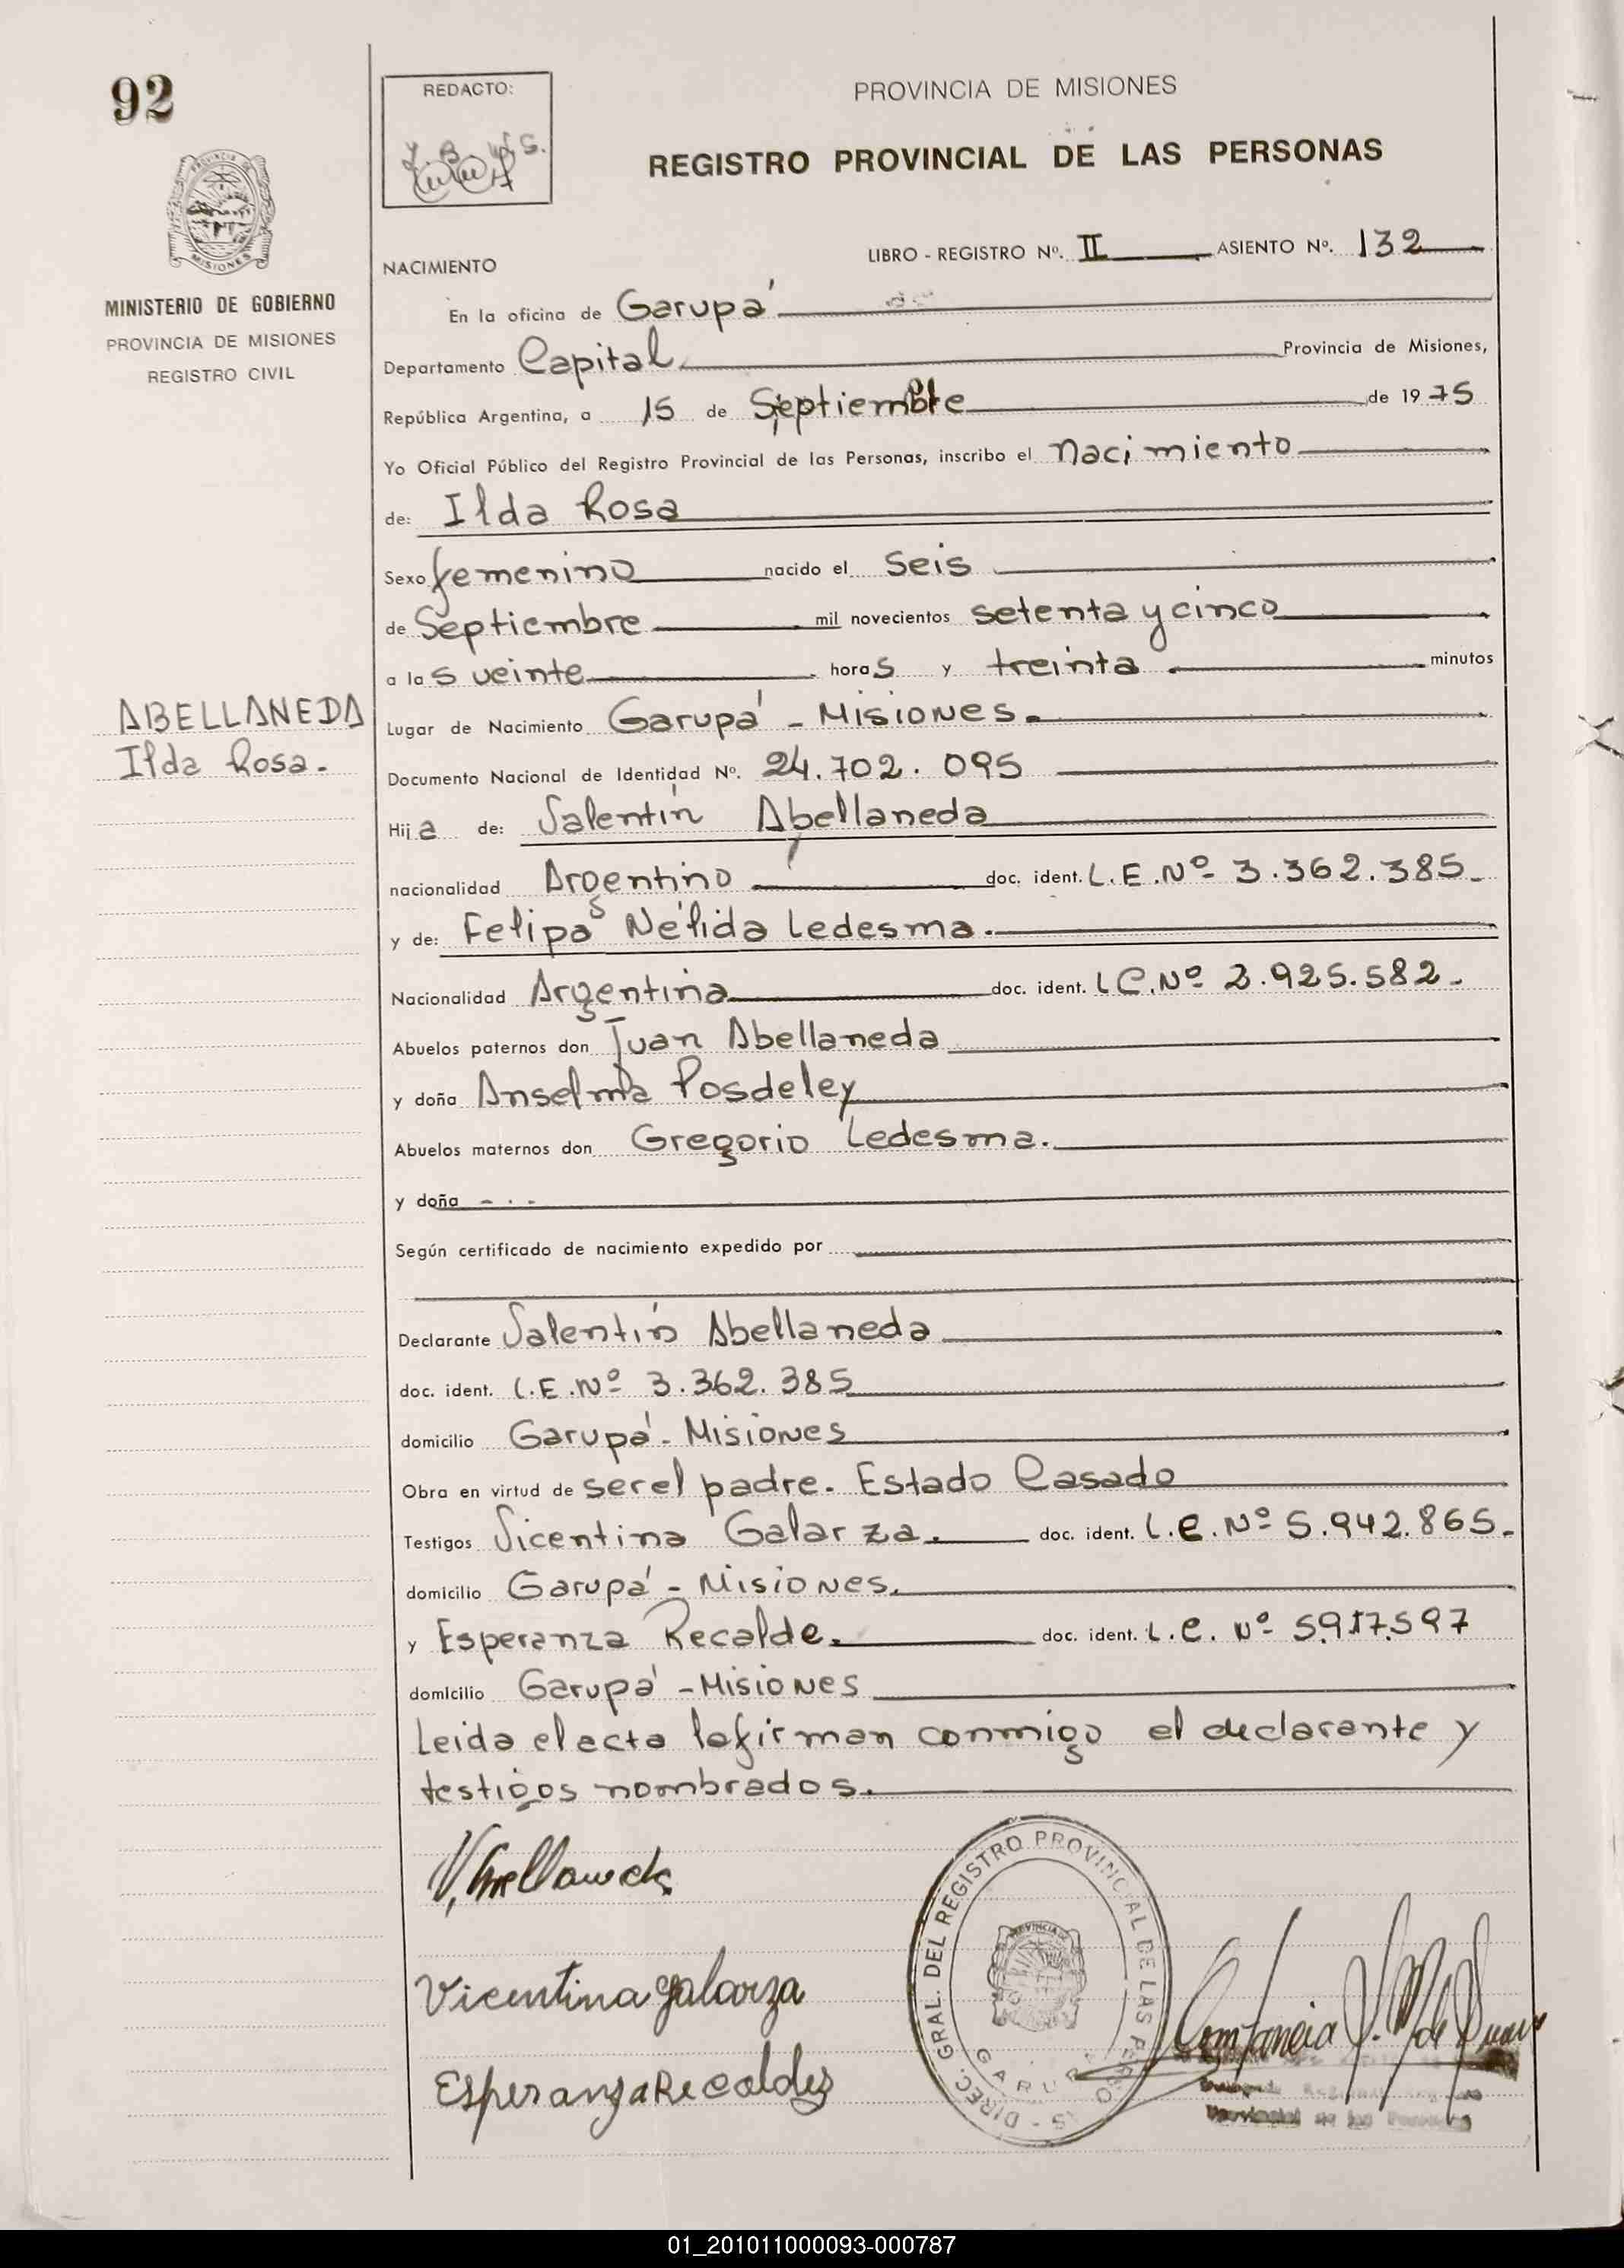 92
REDACTO:
PROVINCIA DE MISIONES
REGISTRO PROVINCIAL DE LAS PERSONAS
MISIONES
MINISTERIO DE GOBIERNO
PROVINCIA DE MISIONES
REGISTRO CIVIL
NACIMIENTO
LIBRO - REGISTRO Nº. II ASIENTO Nº. 132
En la oficina de Garupá
Departamento Capital Provincia de Misiones,
República Argentina, a 15 de Septiembre de 1975
Yo Oficial Público del Registro Provincial de las Personas, inscribo el nacimiento
de: Ilda Rosa
Sexo femenino nacido el seis
de Septiembre mil novecientos setenta y cinco
a las veinte horas y treinta minutos
ABELLANEDA
Ilda Rosa.
Lugar de Nacimiento Garupá - Misiones.
Documento Nacional de Identidad Nº. 24.702.095
Hija de: Valentín Abellaneda
nacionalidad Argentino doc. ident. L.E.Nº 3.362.385.
y de: Felipa Nélida Ledesma.
Nacionalidad Argentina doc. ident. L C.Nº 2.925.582.
Abuelos paternos don Juan Abellaneda
y doña Anselma Posdeley
Abuelos maternos don Gregorio Ledesma.
y doña - . -
Según certificado de nacimiento expedido por
Declarante Valentín Abellaneda
doc. ident. L.E.Nº 3.362.385
domicilio Garupá - Misiones
Obra en virtud de ser el padre. Estado Casado
Testigos Vicentina Galarza. doc. ident. L.C.Nº 5.942.865.
domicilio Garupá - Misiones.
y Esperanza Recalde. doc. ident. L.C. Nº 5.917.597
domicilio Garupá - Misiones
Leida el acta la firman conmigo el declarante y
testigos nombrados.
Vicentina Galarza
Esperanza Recaldez
DIREC. GRAL. DEL REGISTRO PROVINCIAL DE LAS PERSONAS
GARUPA
01_201011000093-000787